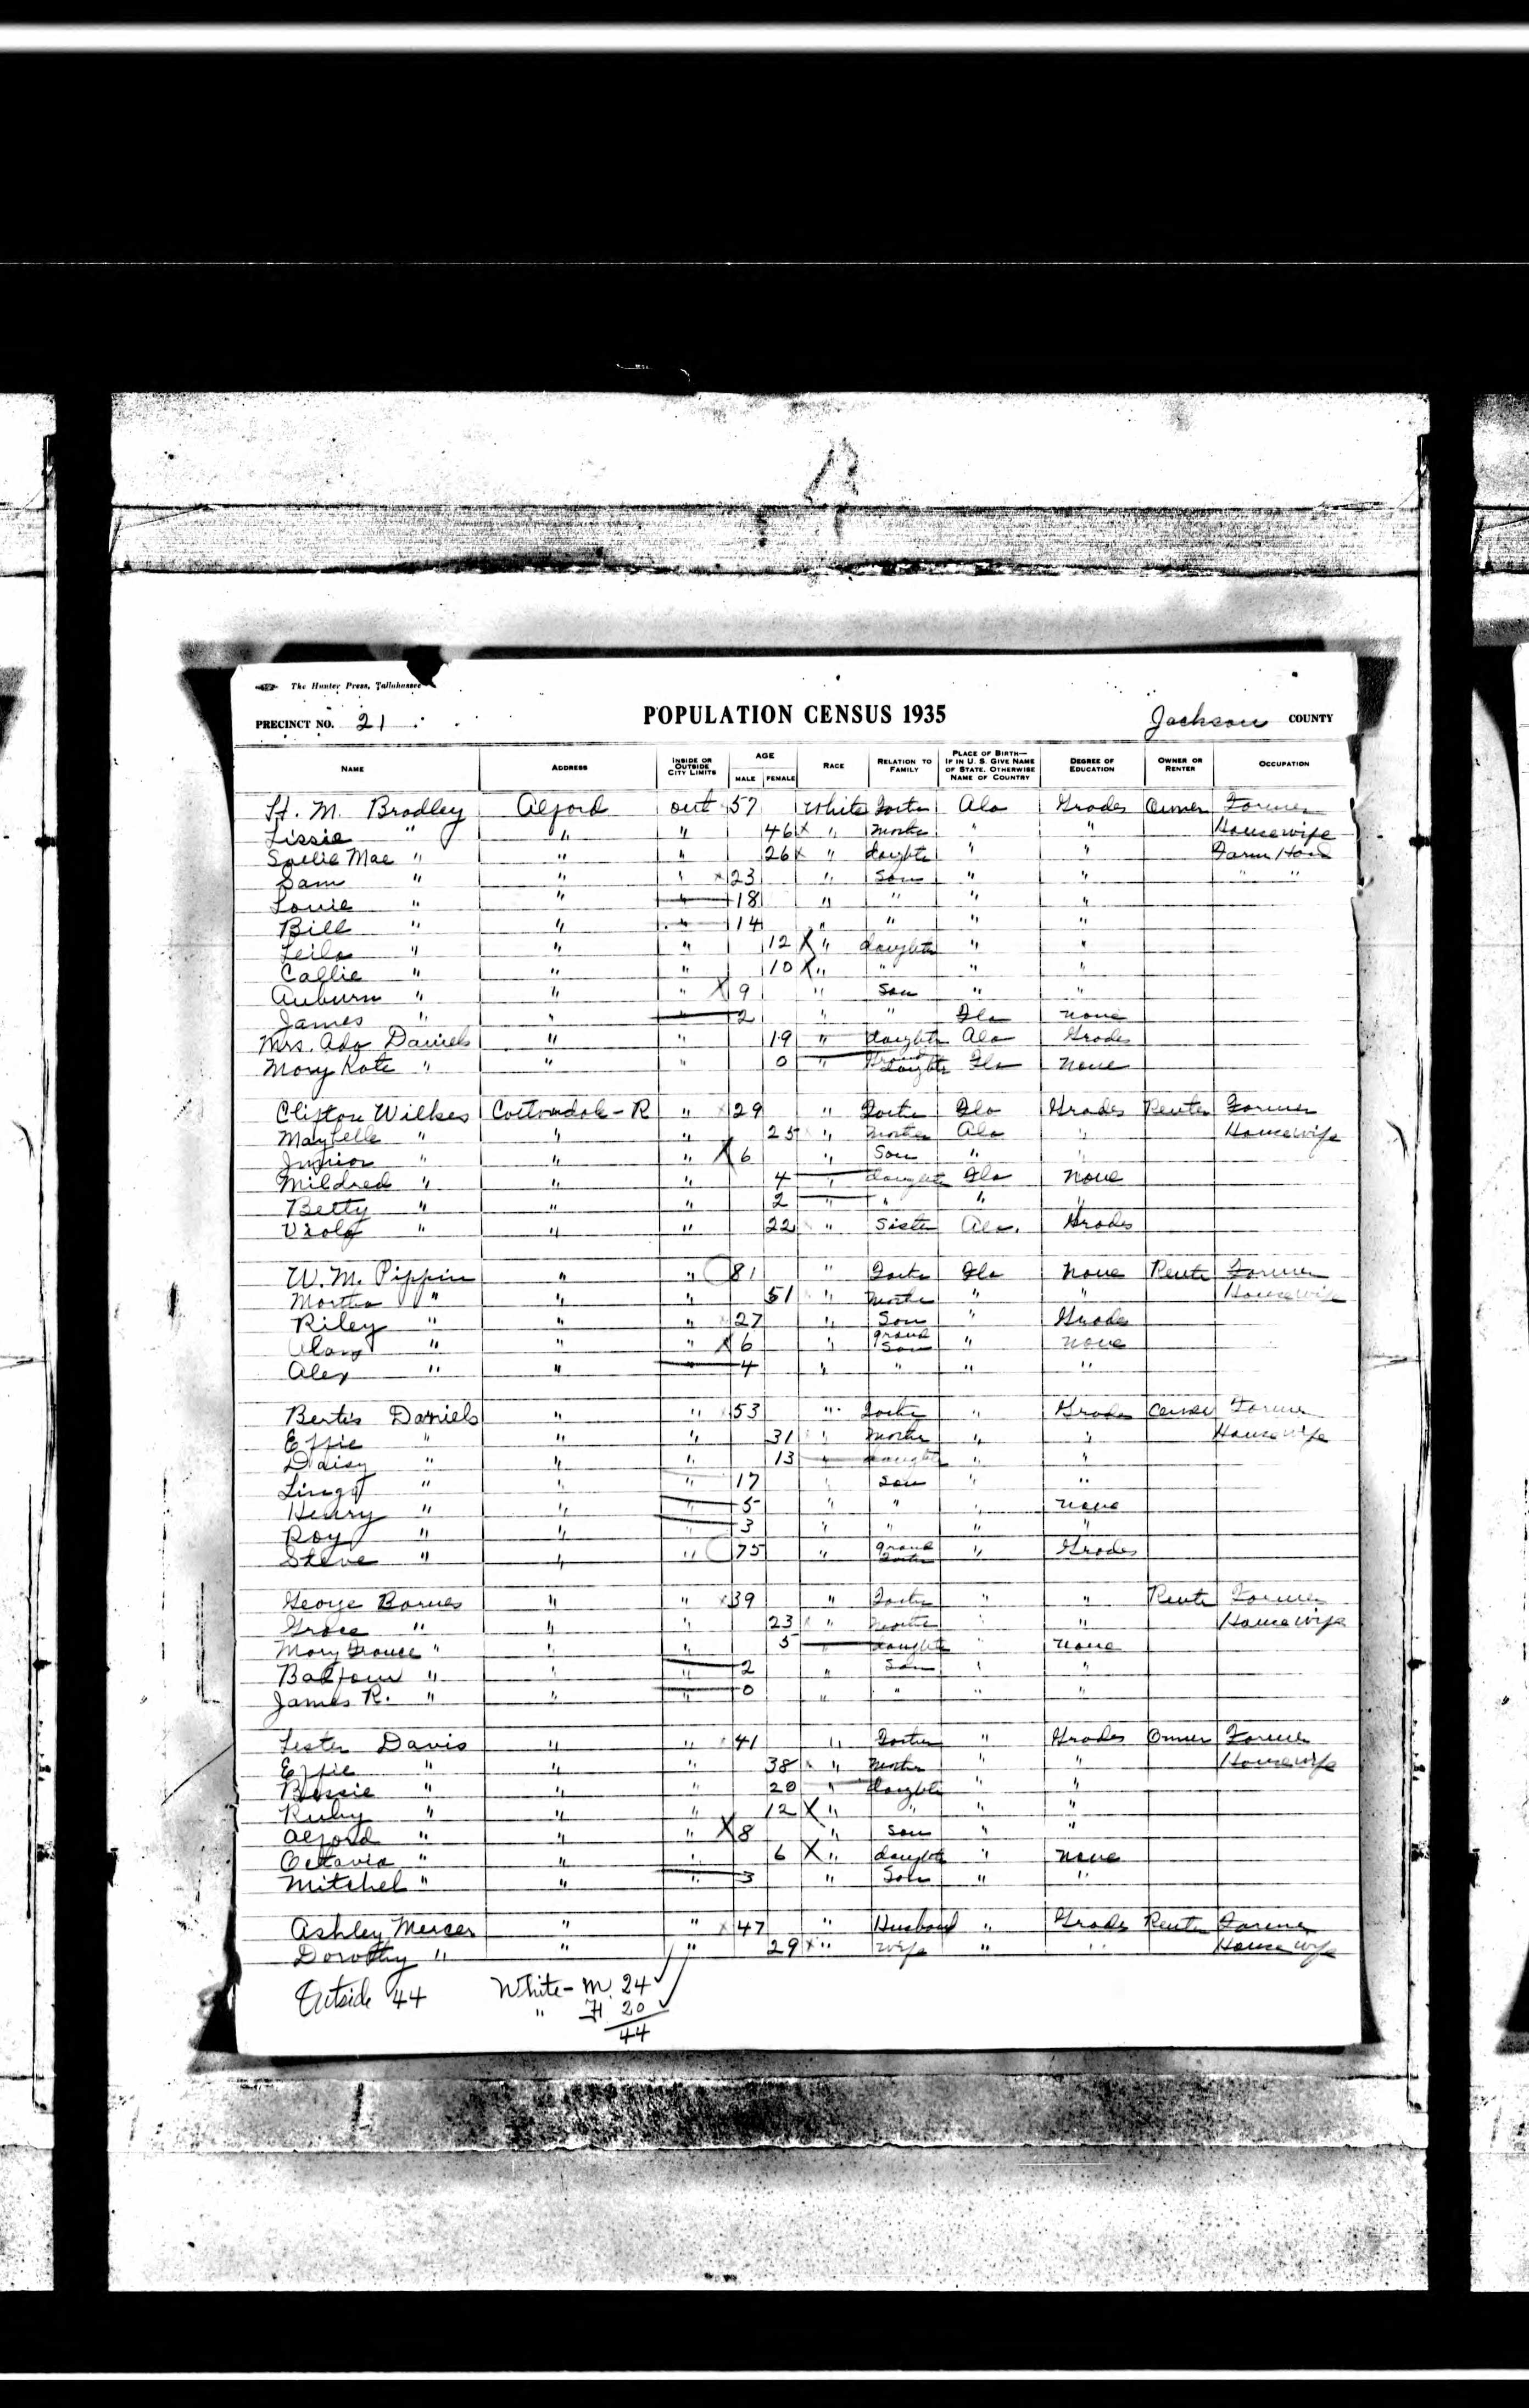 The Hunter Press, Tallahassee
PRECINCT NO. 21 POPULATION CENSUS 1935 Jackson COUNTY
NAME ADDRESS INSIDE OR OUTSIDE CITY LIMITS AGE MALE FEMALE RACE RELATION TO FAMILY PLACE OF BIRTH— IF IN U. S. GIVE NAME OF STATE. OTHERWISE NAME OF COUNTRY DEGREE OF EDUCATION OWNER OR RENTER OCCUPATION
M. Bradley Alford out 57 White Father Ala Grades Owner Farmer
Lissie " " " 46 X " Mother " " Housewife
Sallie Mae " " " 26 X " daughter " " Farm Hand
Sam " " " X 23 " Son " " " "
Louie " " " 18 " " " "
Bill " " " 14 " " " "
Leila " " " 12 X " daughter " "
Callie " " " 10 X " " " "
Auburn " " " X 9 " Son " "
James " " " 2 " " Fla none
Mrs. Ada Daniels " " 19 " daughter Ala Grades
Mary Kate " " " 0 " Grand daughter Fla none
Clifton Wilkes Cottondale - R " X 29 " Father Fla Grades Renter Farmer
Maybelle " " " 25 " Mother Ala " Housewife
Junior " " " X 6 " Son " "
Mildred " " " 4 " daughter Fla none
Betty " " " 2 " " " "
Viola " " " 22 X " Sister Ala. Grades
W. M. Pippin " " 81 " Father Fla none Renter Farmer
Martha " " " 51 " Mother " " Housewife
Riley " " " 27 " Son " Grades
" " " X 6 " grand Son " none
Alex " " " 4 " " " "
Bertis Daniels " " 53 " Father " Grades Owner Farmer
Effie " " " 31 " Mother " " Housewife
Daisy " " " 13 " daughter " "
" " " 17 " Son " "
Henry " " " 5 " " " none
Roy " " " 3 " " " "
Steve " " " 75 " grand Father " Grades
George Barnes " " X 39 " Father " " Renter Farmer
Grace " " " 23 " Mother " " Housewife
Mary " " " 5 " daughter " none
Balfour " " " 2 " Son " "
James R. " " " 0 " " " "
Lester Davis " " X 41 " Father " Grades Owner Farmer
Effie " " " 38 X " Mother " " Housewife
Bessie " " " 20 " daughter " "
Ruby " " " 12 X " " " "
Alford " " " X 8 " son " "
Octavia " " " 6 X " daughter " none
Mitchel " " " 3 " Son " "
Ashley Mercer " " X 47 " Husband " Grades Renter Farmer
Dorothy " " " 29 X " wife " " Housewife
Outside 44 White - M. 24
" F. 20
44